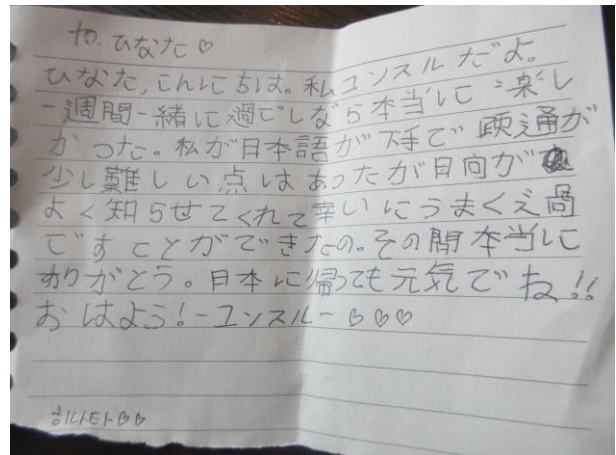 to. ひなた♡
ひなた,こんにちは。私ユンスルだよ。
一週間一緒に過ごしなら本当に楽し
かった。私が日本語が下手で疎通が
少し難しい点はあったが日向が
よく知らせてくれて幸いにうまくえ過
ごすことができたの。その間本当に
ありがとう。日本に帰っても元気でね!!
おはよう!-ユンスル-♡♡♡
히나타♡♡